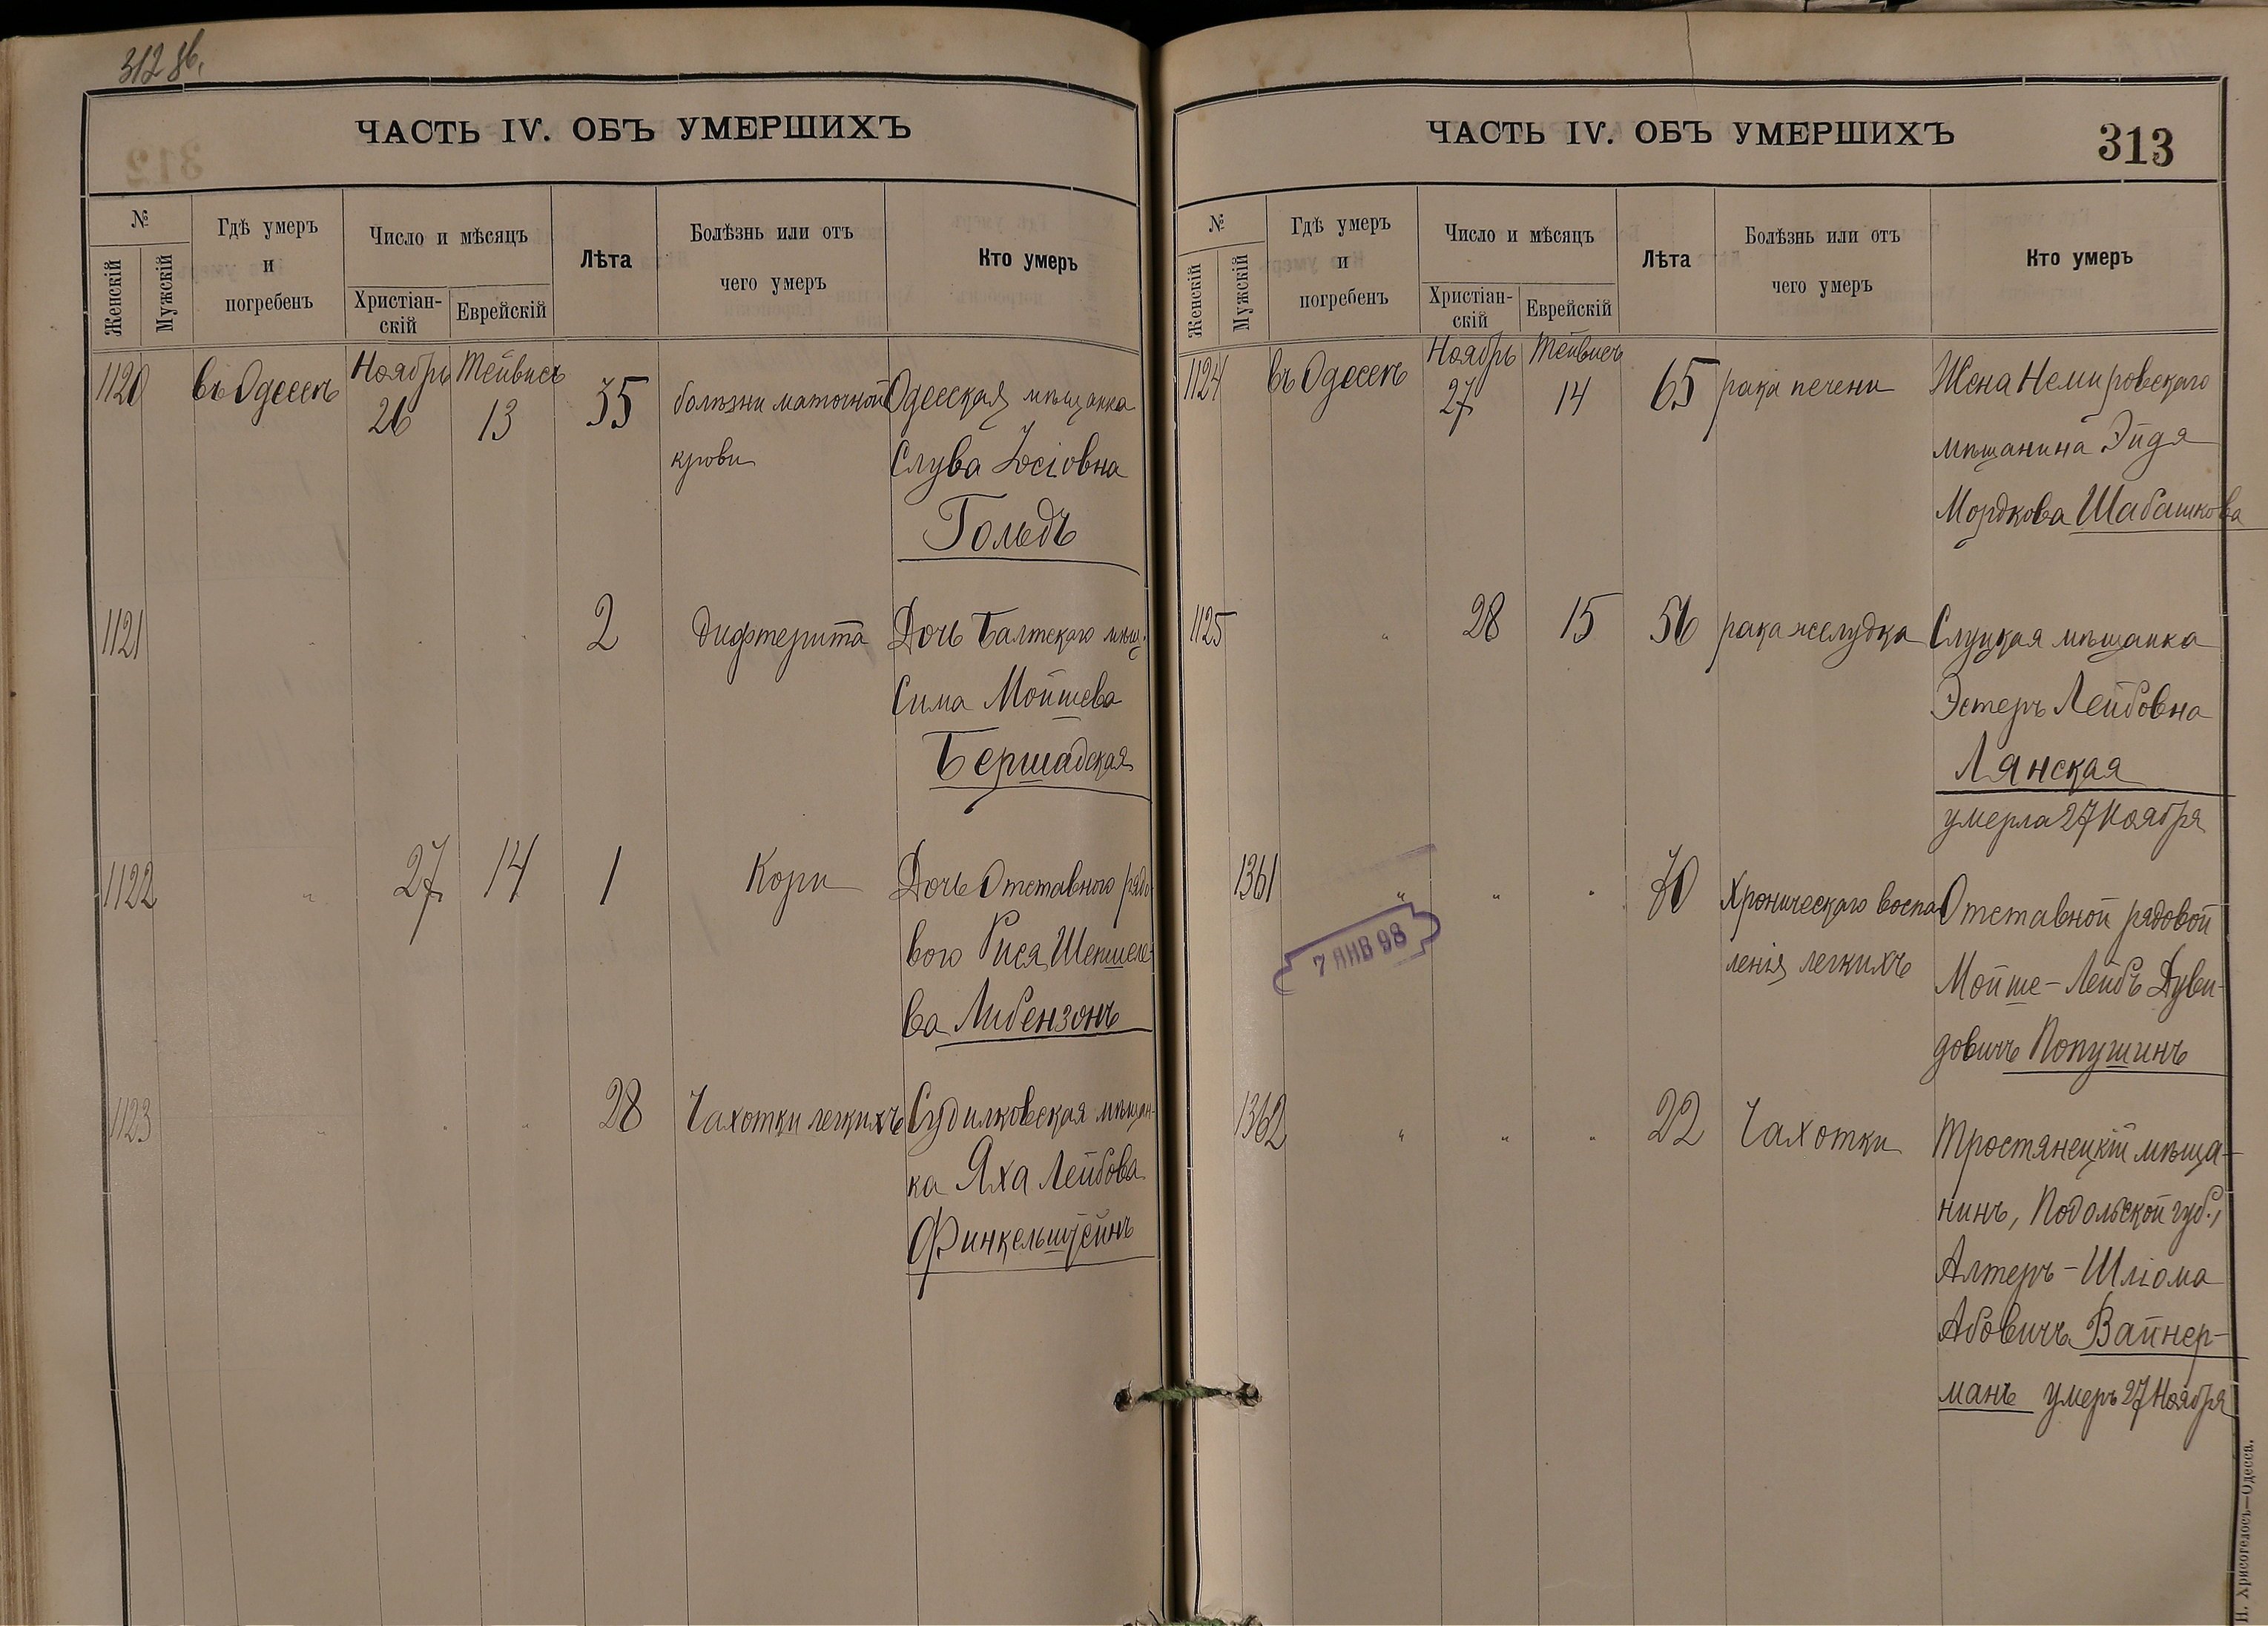 312 об.
ЧАСТЬ IV. ОБЪ УМЕРШИХЪ
№
Женскій
Мужскій
Гдѣ умеръ
и
погребенъ
Число и мѣсяцъ
Христіан-
скій
Еврейскій
Лѣта
Болѣзнь или отъ
чего умеръ
Кто умеръ
1120 въ Одессѣ Ноябрь 26 Тейвисъ 13 35 болѣзни маточной Одесская мѣщанка
крови Слува Іосіовна
Гольдъ
1121 " " " 2 дифтерита Дочь Балтскаго мѣщ.
Сима Мойшева
Бершадская
1122 " 27 14 1 Кори Дочь Отставного рядо-
вого Рися Шепшеле-
ва Либензонъ
1123 " " " 28 Чахотки легкихъ Судилковская мѣщан-
ка Яха Лейбова
Финкельштейнъ
ЧАСТЬ IV. ОБЪ УМЕРШИХЪ
313
№
Женскій
Мужскій
Гдѣ умеръ
и
погребенъ
Число и мѣсяцъ
Христіан-
скій
Еврейскій
Лѣта
Болѣзнь или отъ
чего умеръ
Кто умеръ
1124 въ Одессѣ Ноябрь 27 Тейвисъ 14 65 рака печени Жена Немировскаго
мѣщанина Эйдя
Мордкова Шабашкова
1125 " 28 15 56 рака желудка Слуцкая мѣщанка
Эстеръ Лейбовна
Лянская
умерла 27 Ноября
1361 " " " 70 Хроническаго воспа- Отставной рядовой
ленія легкихъ Мойше-Лейбъ Дуви-
довичъ Попушинъ
7 ЯНВ 98
1362 " " " 22 Чахотки Тростянецкій мѣща-
нинъ, Подольской губ.,
Алтеръ-Шліома
Абовичъ Вайнер-
манъ умеръ 27 Ноября
Н. Хрисогелосъ—Одесса.